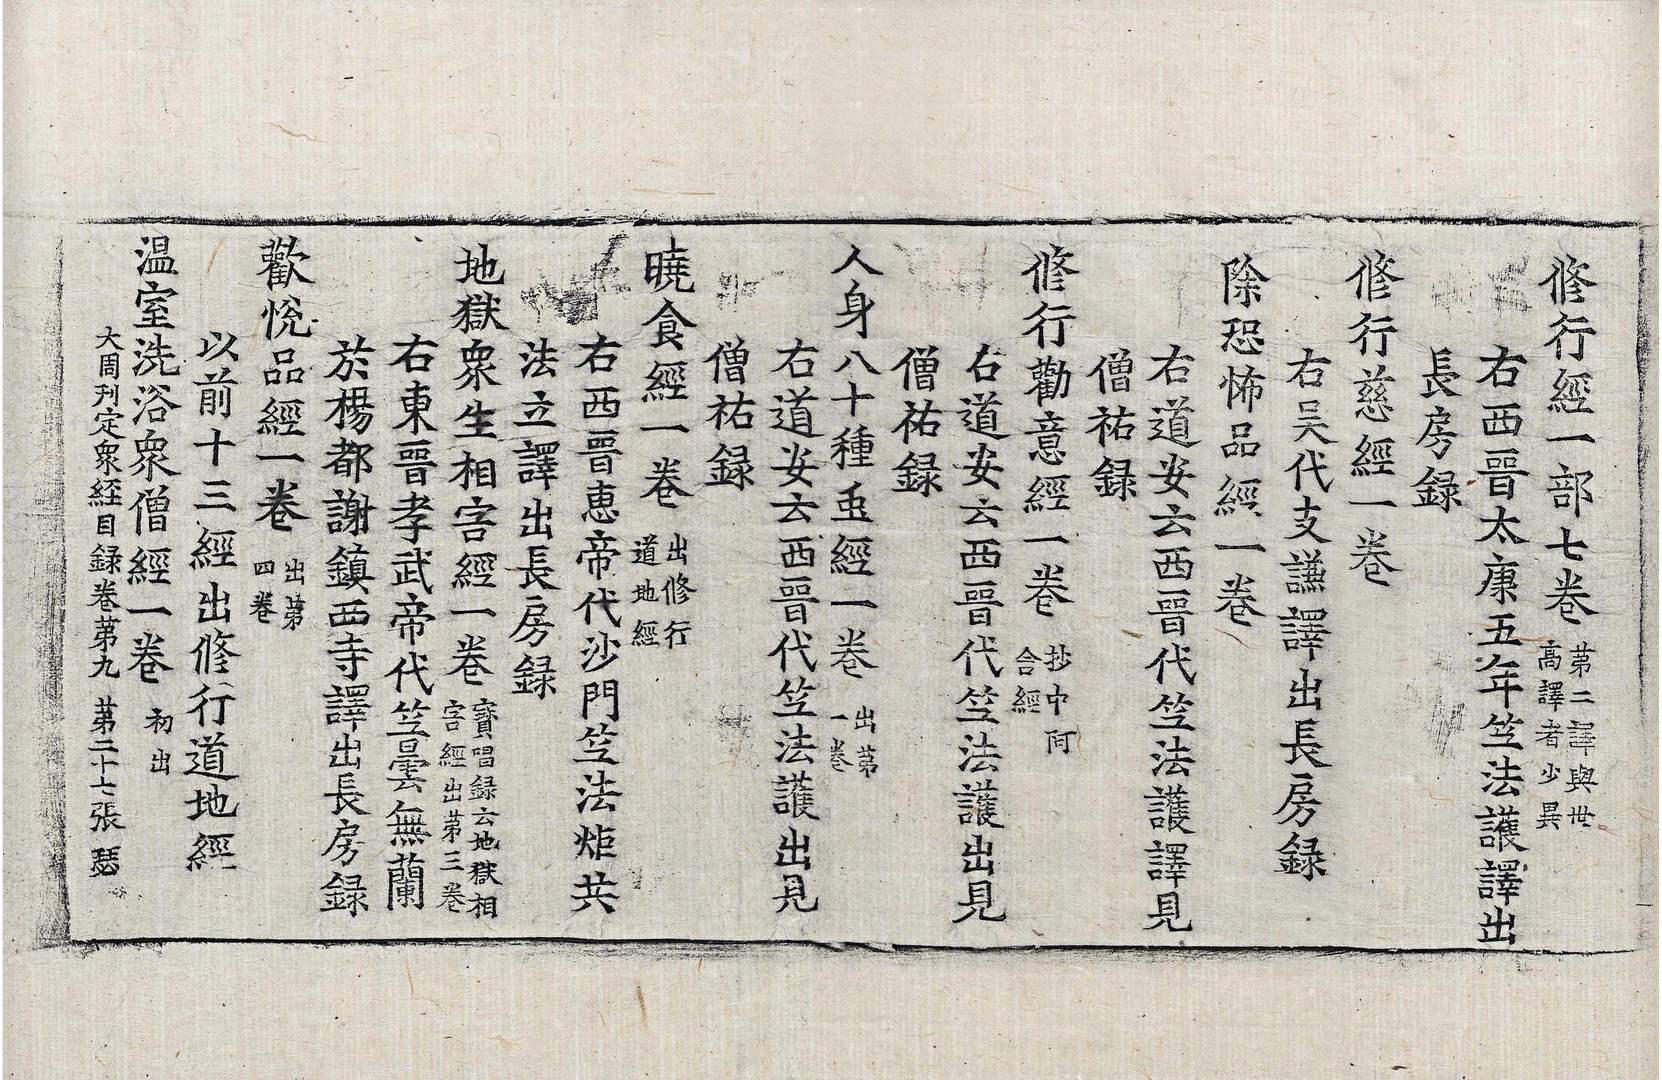 修行經一部七巻 苐二譯與世高譯者少異
右西晉太康五年笁法護譯出
長房録
修行慈經一巻
右吴代支謙譯出長房録
除恐怖品經一巻
右道安云西晉代笁法護譯見
僧祐録
修行勸意經一巻 抄中阿含經
右道安云西晉代笁法護出見
僧祐録
人身八十種虫經一巻 出苐一巻
右道安云西晉代笁法護出見
僧祐録
曉食經一巻 出修行道地經
右西晉惠帝代沙門笁法炬共
法立譯出長房録
地獄衆生相害經一巻 寳唱録云地獄相害經出苐三巻
右東晉孝武帝代笁曇無蘭
於楊都謝鎮西寺譯出長房録
歡悅品經一巻 出苐四巻
以前十三經出修行道地經
温室洗浴衆僧經一巻 初出
大周刋定衆經目録巻苐九 苐二十七張 瑟